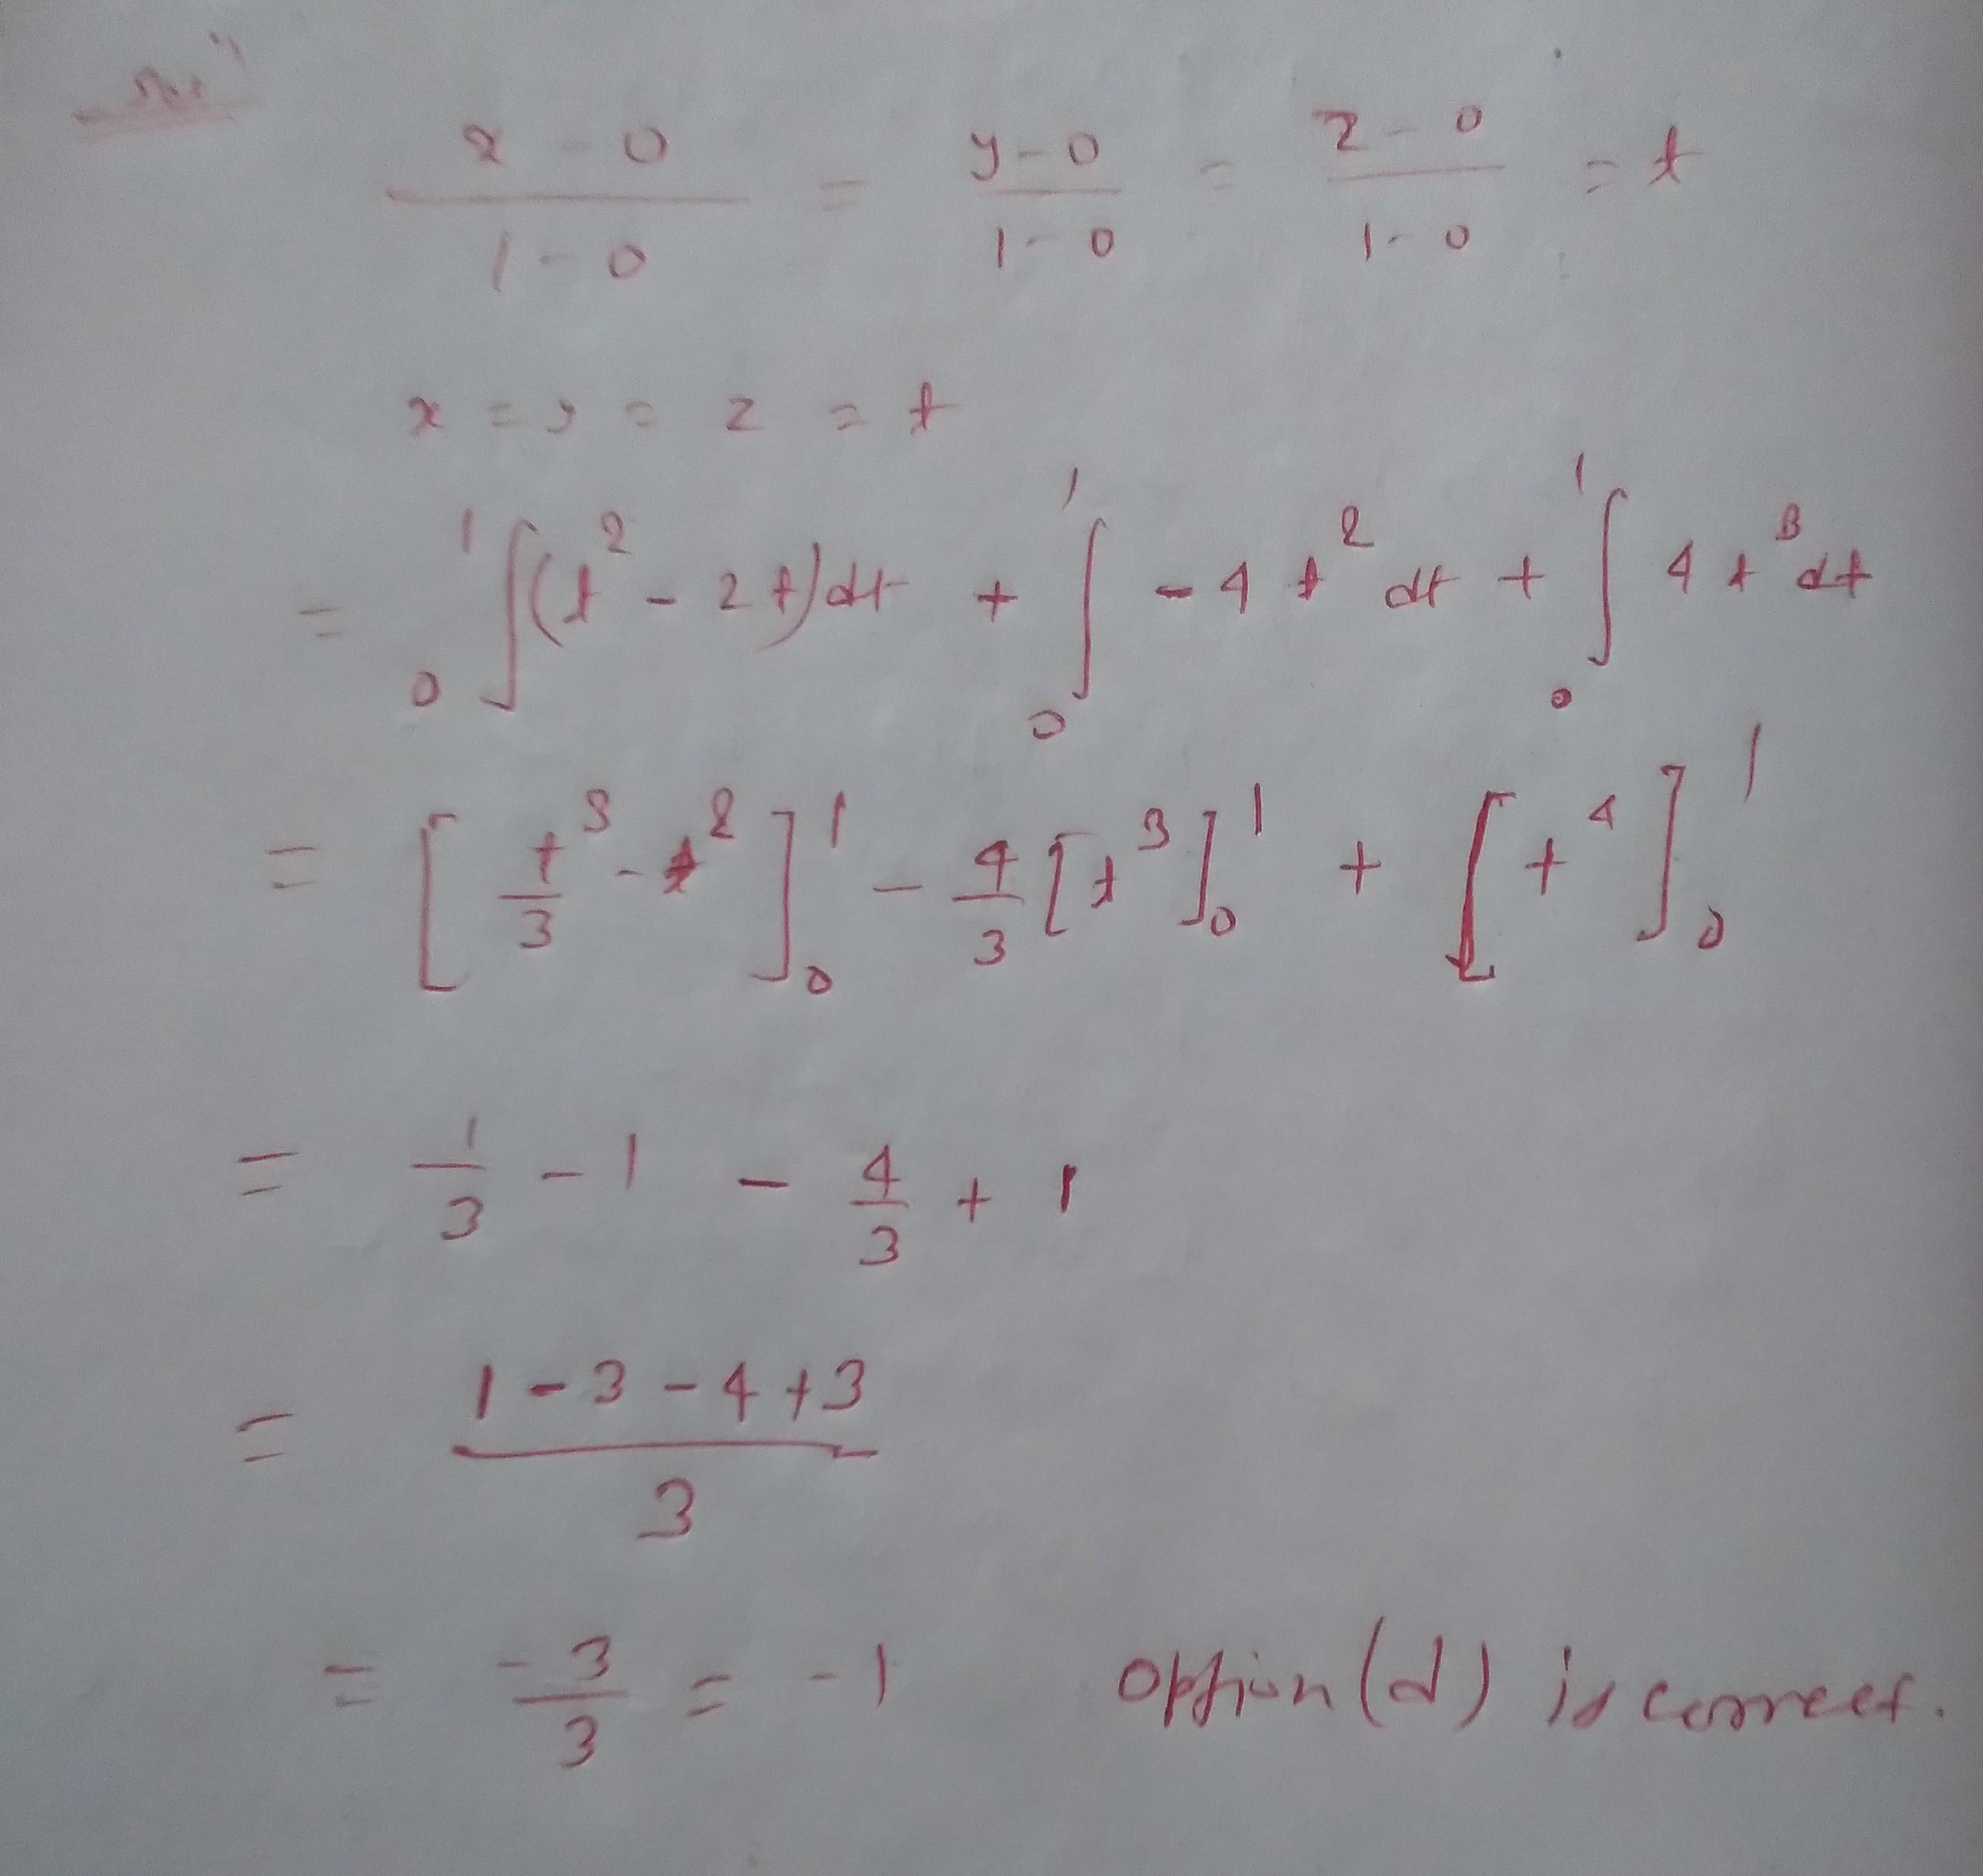 Solⁿ
(x - 0)/(1 - 0) = (y - 0)/(1 - 0) = (z - 0)/(1 - 0) = t
x = y = z = t
= ₀¹∫(t² - 2t)dt + ∫₀¹ - 4t² dt + ∫₀¹ 4t³ dt
= [t³/3 - t²]₀¹ - 4/3 [t³]₀¹ + [t⁴]₀¹
= 1/3 - 1 - 4/3 + 1
= (1 - 3 - 4 + 3)/3
= -3/3 = -1 option (d) is correct.